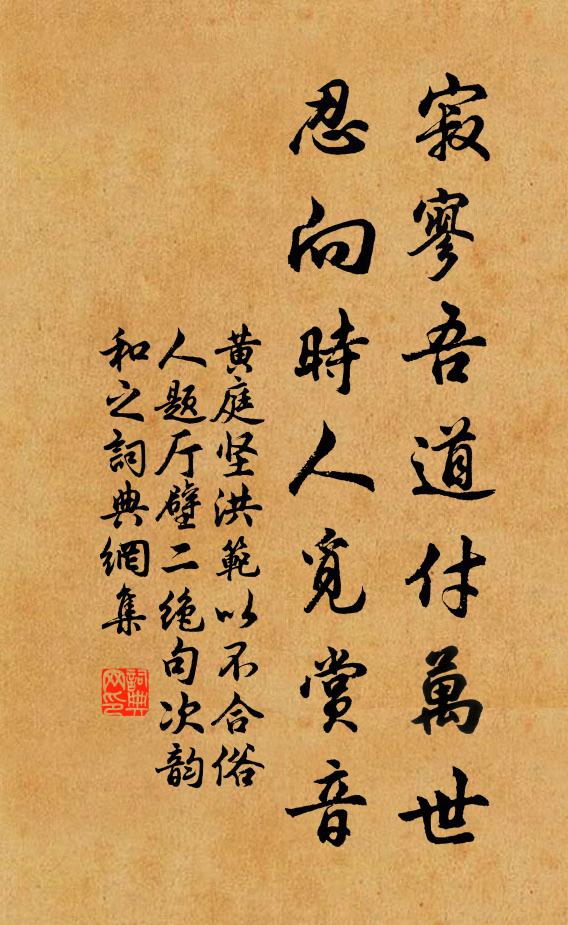 寂寥吾道付萬世
忍向時人覓賞音
黄庭坚洪範以不合俗
人题厅壁二绝句次韵
和之詞典網集
詞典
网印